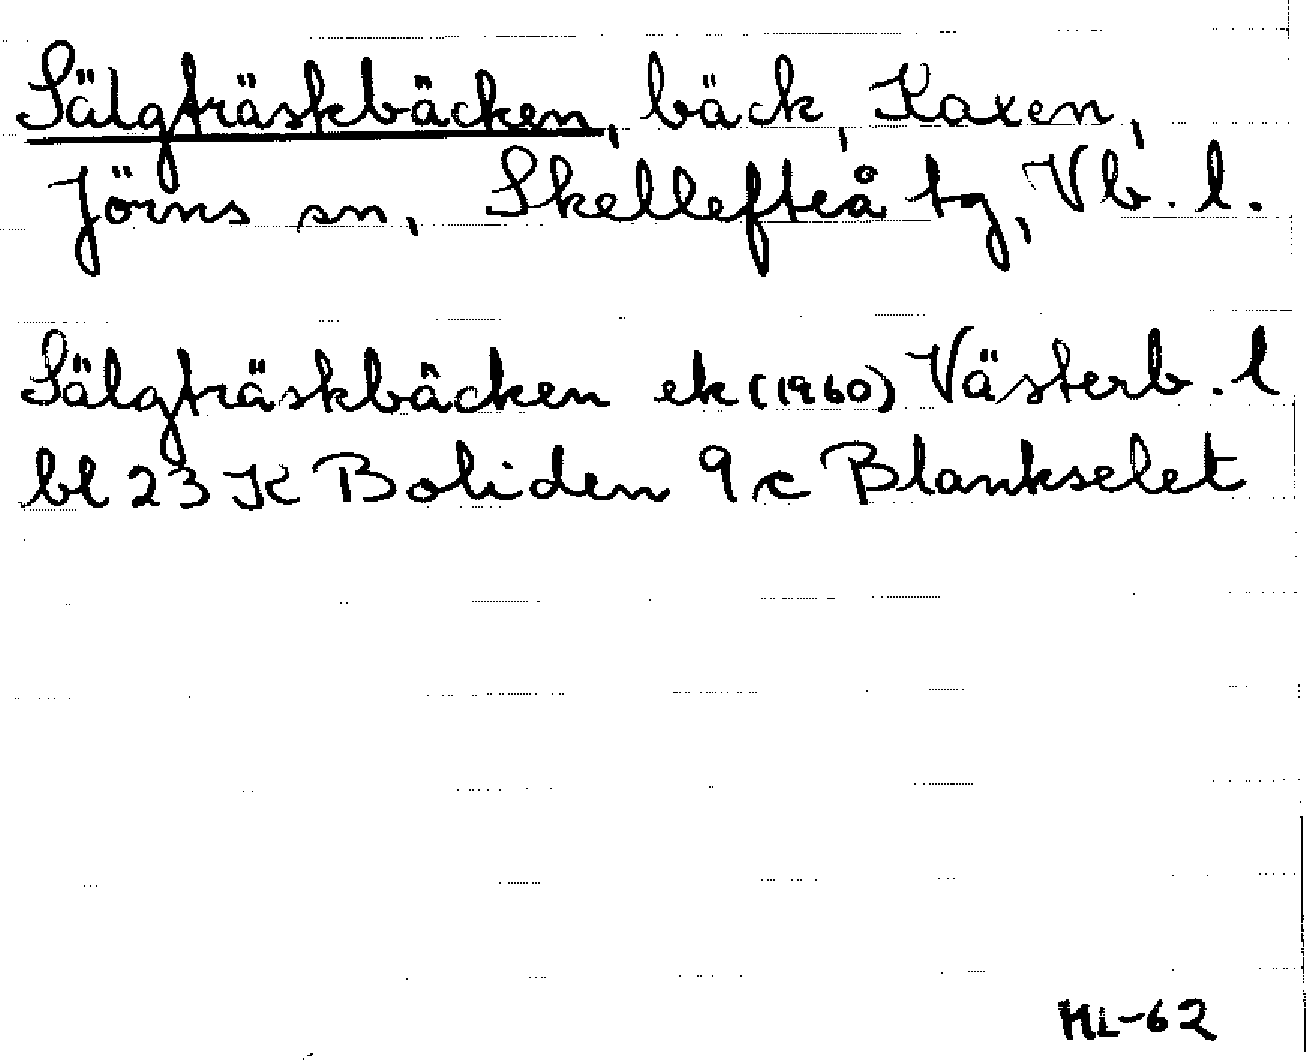 Sälgträskbäcken, bäck, Kaxen,
Jörns sn, Skellefteå tg, Vb. l.
Sälgträskbäcken ek (1960) Västerb. l
bl 23 K Boliden 9 c Blankselet
ML-62